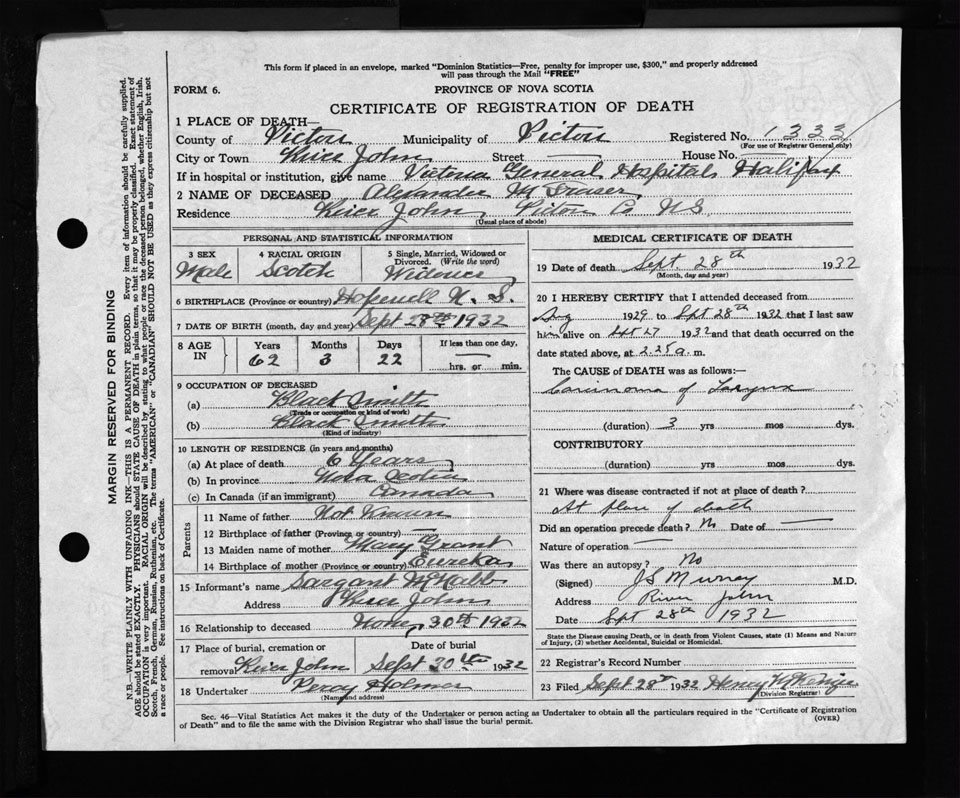 This form if placed in an envelope, marked "Dominion Statistics—Free, penalty for improper use, $300," and properly addressed
will pass through the Mail "FREE"
FORM 6.
PROVINCE OF NOVA SCOTIA
CERTIFICATE OF REGISTRATION OF DEATH
1 PLACE OF DEATH—
County of Pictou Municipality of Pictou Registered No. 1333
(For use of Registrar General only)
City or Town River John Street — House No.
If in hospital or institution, give name Victoria General Hospital Halifax
2 NAME OF DECEASED Alexander M Fraser
Residence River John, Pictou Co N S.
(Usual place of abode)
PERSONAL AND STATISTICAL INFORMATION
3 SEX 4 RACIAL ORIGIN 5 Single, Married, Widowed or Divorced. (Write the word)
Male Scotch Widower
6 BIRTHPLACE (Province or country) Hopewell N. S.
7 DATE OF BIRTH (month, day and year) Sept 28th 1932
8 AGE IN Years Months Days If less than one day,
62 3 22 — hrs. or min.
9 OCCUPATION OF DECEASED
(a) Black Smith
(Trade or occupation or kind of work)
(b) Black Smith
(Kind of industry)
10 LENGTH OF RESIDENCE (in years and months)
(a) At place of death 6 Years
(b) In province Nova Scotia
(c) In Canada (if an immigrant) Canada
Parents
11 Name of father Not Known
12 Birthplace of father (Province or country) —
13 Maiden name of mother Mary Grant
14 Birthplace of mother (Province or country) Eureka
15 Informant's name Sargant McNabb
Address River John
16 Relationship to deceased 30th 1932
17 Place of burial, cremation or removal Date of burial
River John Sept 30th 1932
18 Undertaker Percy Holmes
(Name and address)
MEDICAL CERTIFICATE OF DEATH
19 Date of death Sept. 28th 1932
(Month, day and year)
20 I HEREBY CERTIFY that I attended deceased from
Aug 1929 to Sept 28th 1932 that I last saw
him alive on Sept 27 1932 and that death occurred on
date stated above, at 2.25 a. m.
The CAUSE of DEATH was as follows:
Carcinoma of Larynx
(duration) 3 yrs mos dys.
CONTRIBUTORY
(duration) yrs mos dys.
21 Where was disease contracted if not at place of death?
At place of death
Did an operation precede death? No Date of —
Nature of operation —
Was there an autopsy? No
(Signed) J S Murray M.D.
Address River John
Date Sept 28th 1932
State the Disease causing Death, or in death from Violent Causes, state (1) Means and Nature
of Injury, (2) whether Accidental, Suicidal or Homicidal.
22 Registrar's Record Number
23 Filed Sept 28th 1932 Henry McKenzie
(Division Registrar)
Sec. 46—Vital Statistics Act makes it the duty of the Undertaker or person acting as Undertaker to obtain all the particulars required in the "Certificate of Registration
of Death" and to file the same with the Division Registrar who shall issue the burial permit.
(OVER)
MARGIN RESERVED FOR BINDING
N.B.—WRITE PLAINLY WITH UNFADING INK—THIS IS A PERMANENT RECORD. Every item of information should be carefully supplied.
AGE should be stated EXACTLY. PHYSICIANS should STATE CAUSE OF DEATH in plain terms, so that it may be properly classified. Exact statement of
OCCUPATION is very important. RACIAL ORIGIN will be described by stating to what people or race the deceased person belonged, whether English, Irish,
Scotch, French, German, Russian, Ruthenian, etc. The terms "AMERICAN" or "CANADIAN" SHOULD NOT BE USED as they express citizenship but not
a race or people. See instructions on back of Certificate.